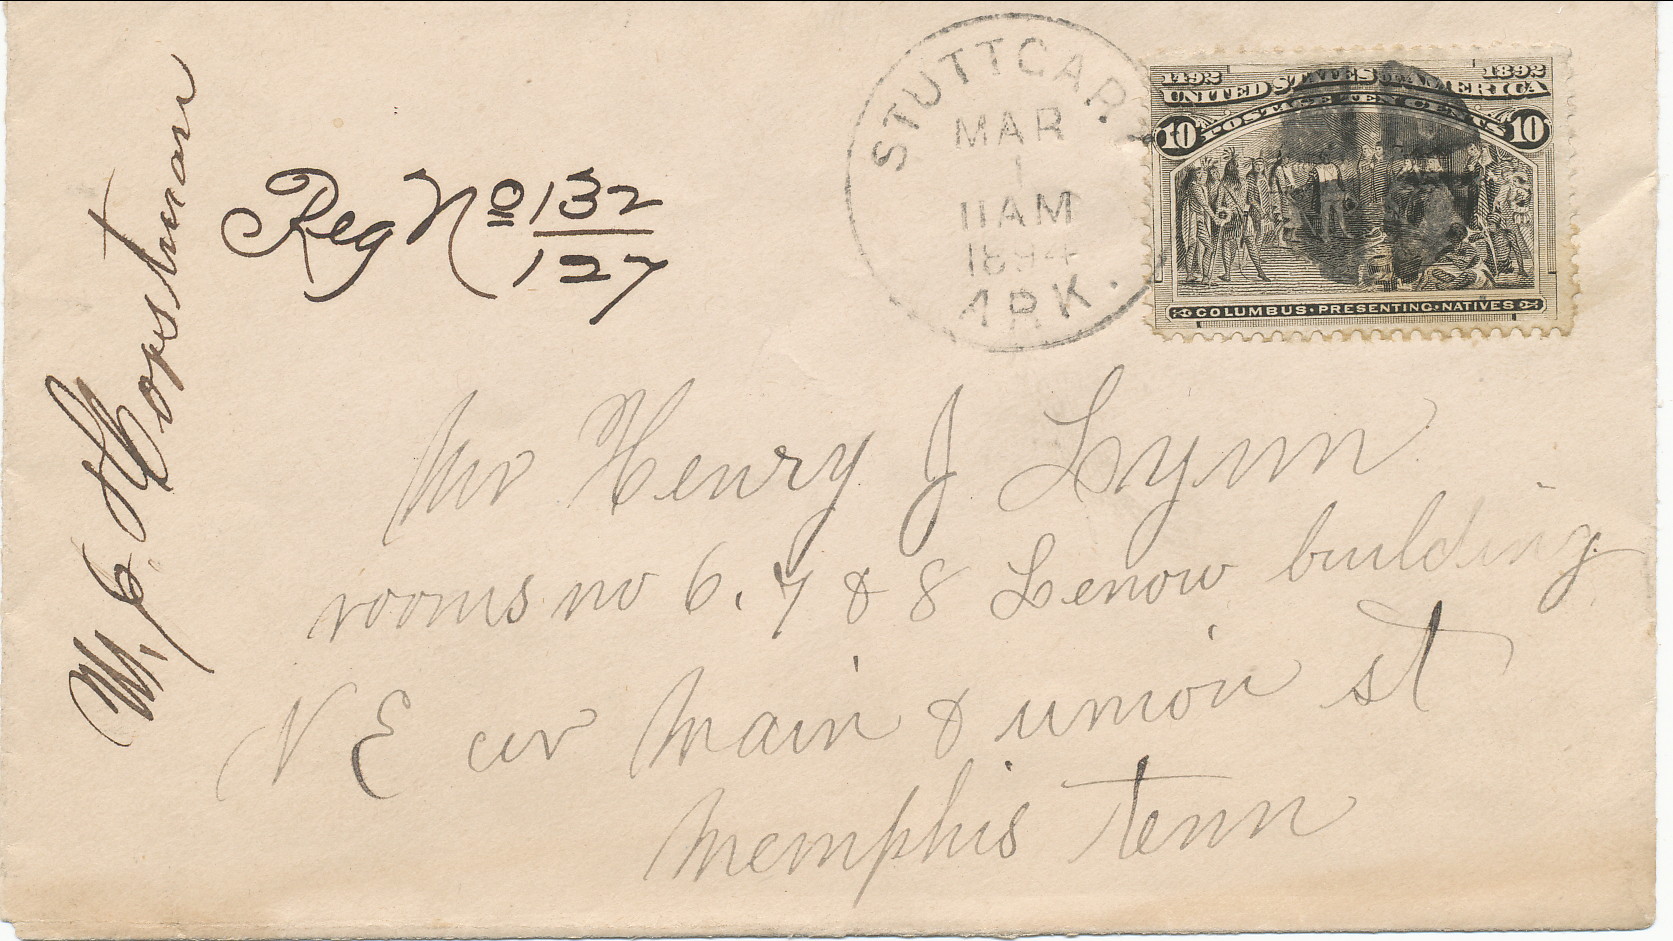 W. C. Thorpstman
Reg Nº 132
127
STUTTGART
MAR
1
11AM
1894
ARK.
1492 1892
UNITED STATES OF AMERICA
POSTAGE TEN CENTS
10 10
COLUMBUS·PRESENTING·NATIVES
Mr Henry J Lynn
rooms no 6. 7 & 8 Lenow building
N E cor Main & union st
Memphis Tenn